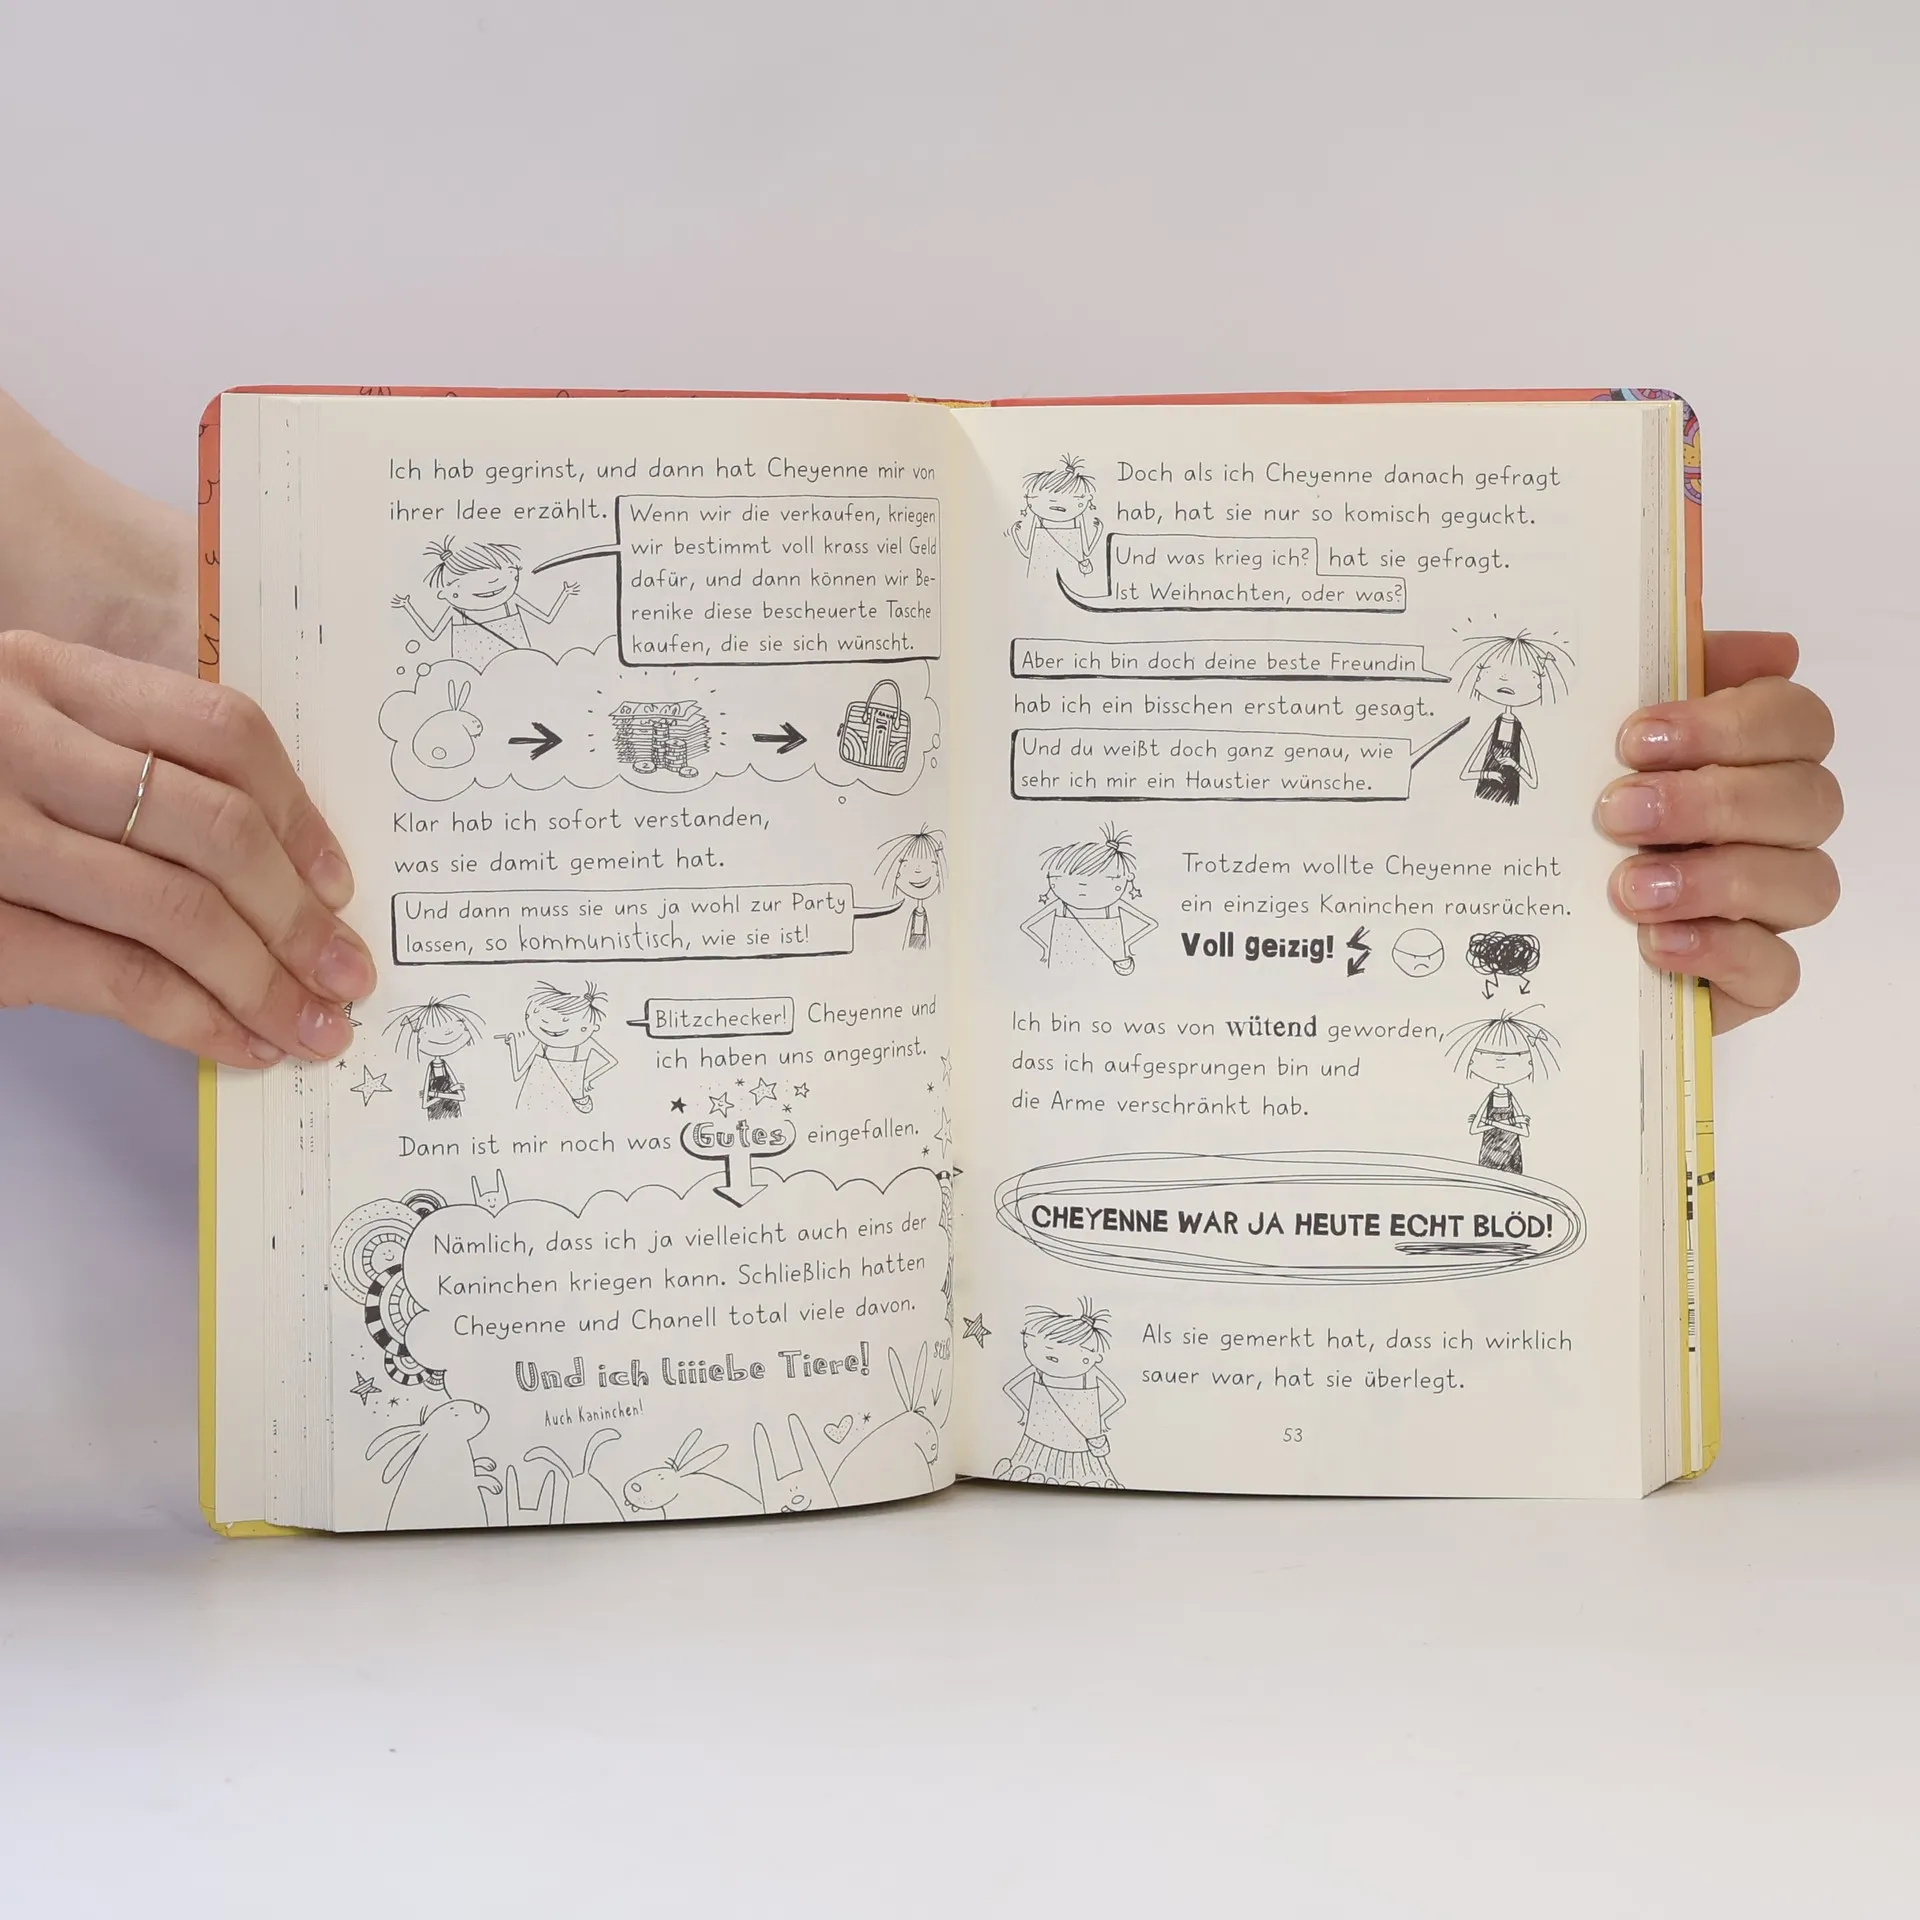 Ich hab gegrinst, und dann hat Cheyenne mir von
ihrer Idee erzählt.
Wenn wir die verkaufen, kriegen
wir bestimmt voll krass viel Geld
dafür, und dann können wir Be-
renike diese bescheuerte Tasche
kaufen, die sie sich wünscht.
Klar hab ich sofort verstanden,
was sie damit gemeint hat.
Und dann muss sie uns ja wohl zur Party
lassen, so kommunistisch, wie sie ist!
Blitzchecker! Cheyenne und
ich haben uns angegrinst.
Dann ist mir noch was (Gutes) eingefallen.
Nämlich, dass ich ja vielleicht auch eins der
Kaninchen kriegen kann. Schließlich hatten
Cheyenne und Chanell total viele davon.
Und ich liiiebe Tiere!
Auch Kaninchen!
Doch als ich Cheyenne danach gefragt
hab, hat sie nur so komisch geguckt.
Und was krieg ich? hat sie gefragt.
Ist Weihnachten, oder was?
Aber ich bin doch deine beste Freundin
hab ich ein bisschen erstaunt gesagt.
Und du weißt doch ganz genau, wie
sehr ich mir ein Haustier wünsche.
Trotzdem wollte Cheyenne nicht
ein einziges Kaninchen rausrücken.
Voll geizig!
Ich bin so was von wütend geworden,
dass ich aufgesprungen bin und
die Arme verschränkt hab.
CHEYENNE WAR JA HEUTE ECHT BLÖD!
Als sie gemerkt hat, dass ich wirklich
sauer war, hat sie überlegt.
53